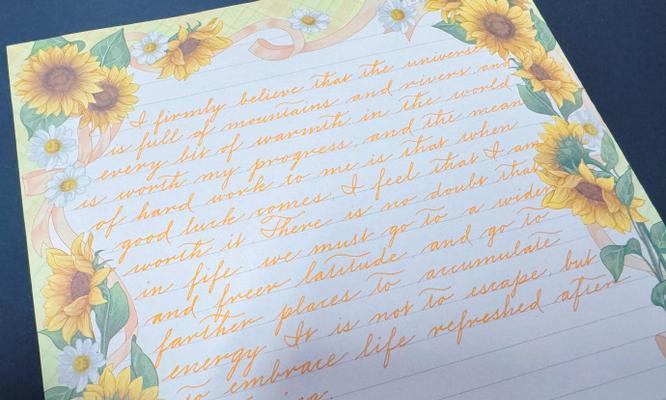 I firmly believe that the universe
is full of mountains and rivers, and
every bit of warmth in the world
is worth my progress, and the mean
of hard work to me is that when
good luck comes, I feel that I am
worth it. There is no doubt that
in fife, we must go to a wider
and freer latitude, and go to
farther places to accumulate
energy. It is not to escape, but
to embrace life refreshed after